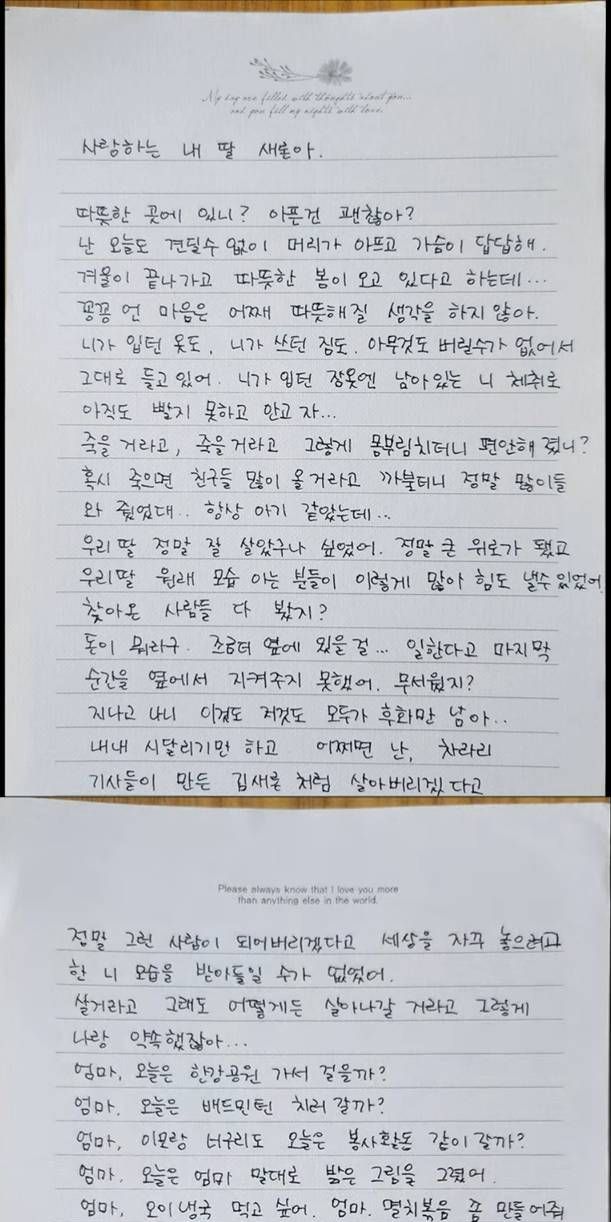 My day are filled with thoughts about you...
and you fill my nights with love.
사랑하는 내 딸 새론아.
따뜻한 곳에 있니? 아픈건 괜찮아?
난 오늘도 견딜수 없이 머리가 아프고 가슴이 답답해.
겨울이 끝나가고 따뜻한 봄이 오고 있다고 하는데...
꽁꽁 언 마음은 어째 따뜻해질 생각을 하지 않아.
니가 입던 옷도, 니가 쓰던 짐도. 아무것도 버릴수가 없어서
그대로 들고 있어. 니가 입던 잠옷엔 남아있는 니 체취로
아직도 빨지 못하고 안고 자...
죽을 거라고, 죽을거라고 그렇게 몸부림치더니 편안해 졌니?
혹시 죽으면 친구들 많이 올 거라고 까불더니 정말 많이들
와 줬었대.. 항상 아기 같았는데...
우리 딸 정말 잘 살았구나 싶었어. 정말 큰 위로가 됐고
우리딸 원래 모습 아는 분들이 이렇게 많아 힘도 낼수 있었어
찾아온 사람들 다 봤지?
돈이 뭐라구. 조금더 옆에 있을 걸... 일한다고 마지막
순간을 옆에서 지켜주지 못했어. 무서웠지?
지나고 나니 이것도 저것도 모두가 후회만 남아..
내내 시달리기만 하고 어쩌면 난, 차라리
기사들이 만든 김새론 처럼 살아버리겠다고
Please always know that I love you more
than anything else in the world.
정말 그런 사람이 되어버리겠다고 세상을 자꾸 놓으려고
한 니 모습을 받아들일 수가 없었어.
살거라고 그래도 어떻게든 살아나갈 거라고 그렇게
나랑 약속했잖아...
엄마, 오늘은 한강공원 가서 걸을까?
엄마. 오늘은 배드민턴 치러 갈까?
엄마, 이모랑 너구리도 오늘은 봉사활동 같이 갈까?
엄마. 오늘은 엄마 말대로 밝은 그림을 그렸어.
엄마, 오이냉국 먹고 싶어. 엄마. 멸치볶음 좀 만들어줘